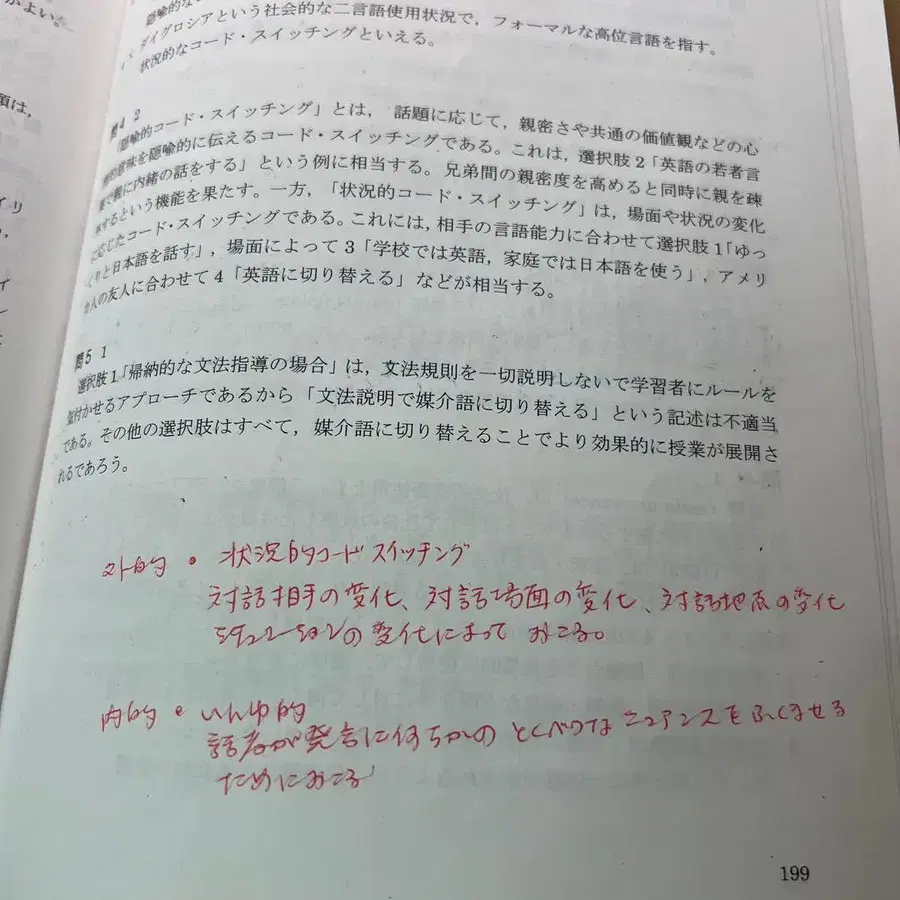 がよい。
項は,
イリ
ダイグロシアという社会的な二言語使用状況で，フォーマルな高位言語を指す。
状況的なコード・スイッチングといえる。
問4 2
「隠喩的コード・スイッチング」とは， 話題に応じて，親密さや共通の価値観などの心
理的意味を隠喩的に伝えるコード・スイッチングである。これは，選択肢2「英語の若者言
葉で親に内緒の話をする」という例に相当する。兄弟間の親密度を高めると同時に親を疎
外するという機能を果たす。一方，「状況的コード・スイッチング」は，場面や状況の変化
に応じたコード・スイッチングである。これには，相手の言語能力に合わせて選択肢1「ゆっ
くりと日本語を話す」，場面によって3「学校では英語，家庭では日本語を使う」，アメリ
カ人の友人に合わせて4「英語に切り替える」などが相当する。
問5 1
選択肢1「帰納的な文法指導の場合」は，文法規則を一切説明しないで学習者にルールを
気付かせるアプローチであるから「文法説明で媒介語に切り替える」という記述は不適当
である。その他の選択肢はすべて，媒介語に切り替えることでより効果的に授業が展開さ
れるであろう。
外的・状況的コードスイッチング
対話相手の変化、対話場面の変化、対話地点の変化
シチュエーションの変化によっておこる。
内的・いんゆ的
話者が発言に何らかのとくべつなニュアンスをふくませる
ためにおこる
199